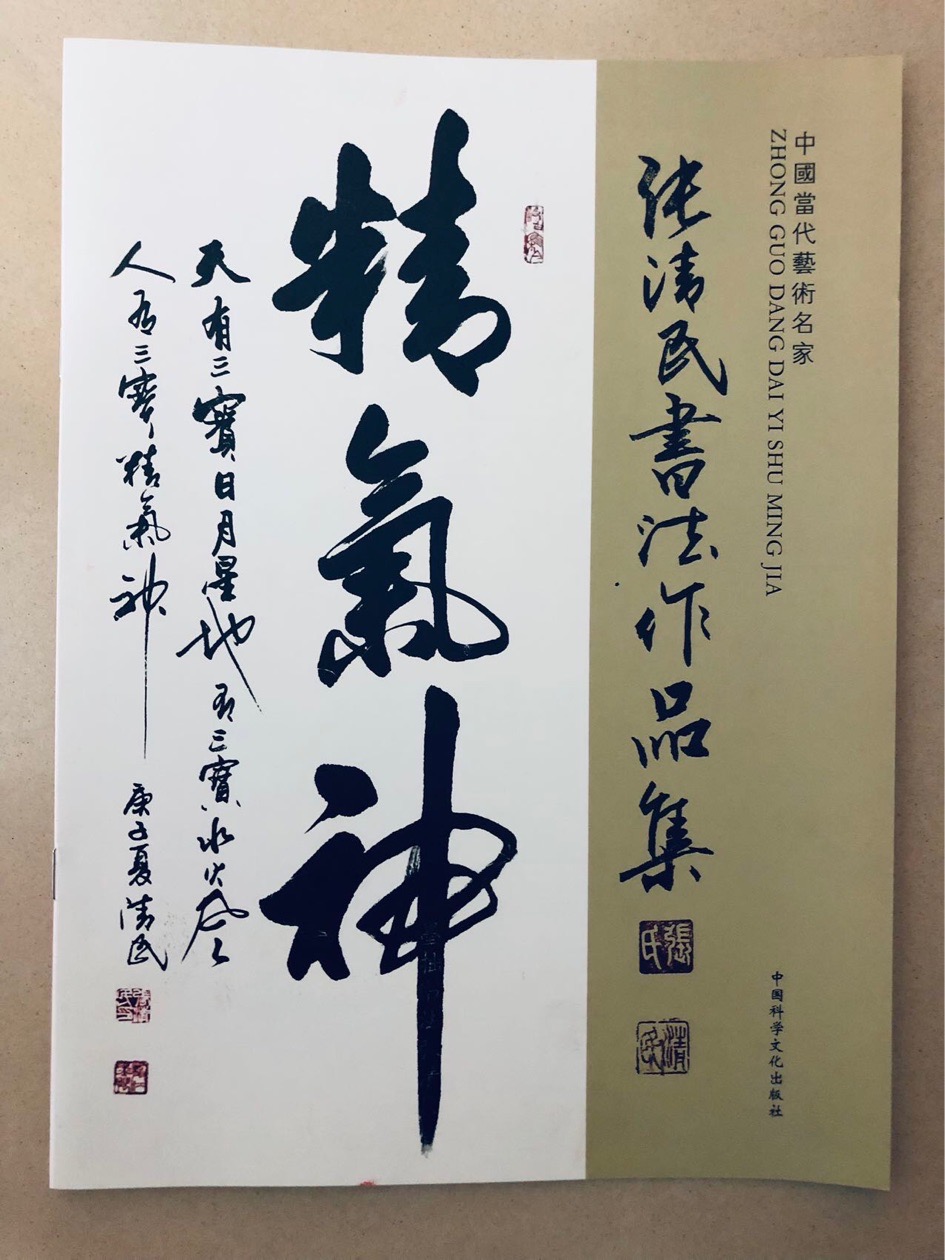 中國當代藝術名家
ZHONG GUO DANG DAI YI SHU MING JIA
张清民書法作品集
張氏
清民
中国科学文化出版社
精氣神
天有三寳日月星地有三寳水火風
人有三寳精氣神
庚子夏清民